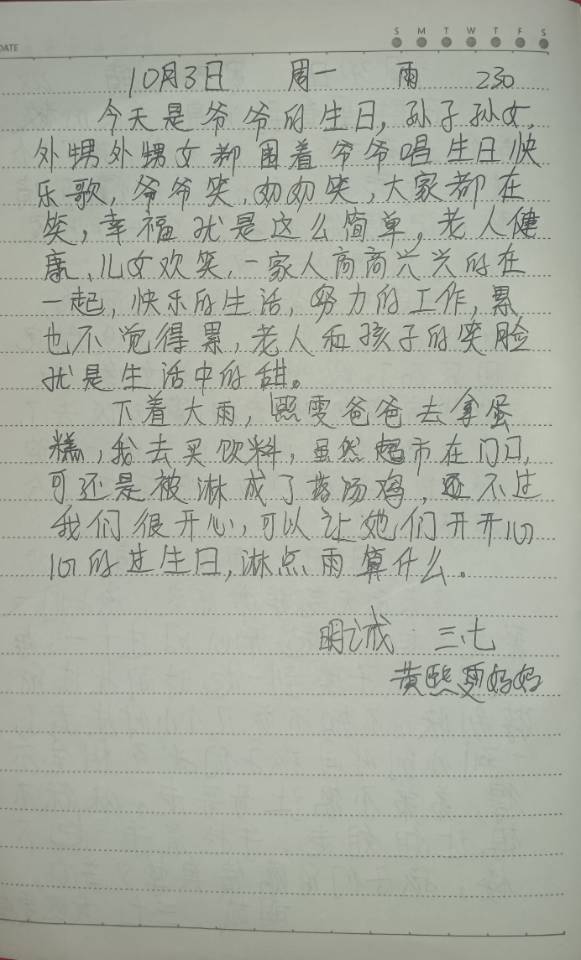 DATE
S M T W T F S
10月3日 周一 雨 230
今天是爷爷的生日,孙子孙女,
外甥外甥女都围着爷爷唱生日快
乐歌,爷爷笑,奶奶笑,大家都在
笑,幸福就是这么简单,老人健
康、儿女欢笑,一家人高高兴兴的在
一起,快乐的生活,努力的工作,累
也不觉得累,老人和孩子的笑脸
就是生活中的甜。
下着大雨,熙雯爸爸去拿蛋
糕,我去买饮料,虽然超市在门口,
可还是被淋成了落汤鸡,还不过
我们很开心,可以让她们开开心
心的过生日,淋点雨算什么。
明诚 三七
黄熙雯妈妈